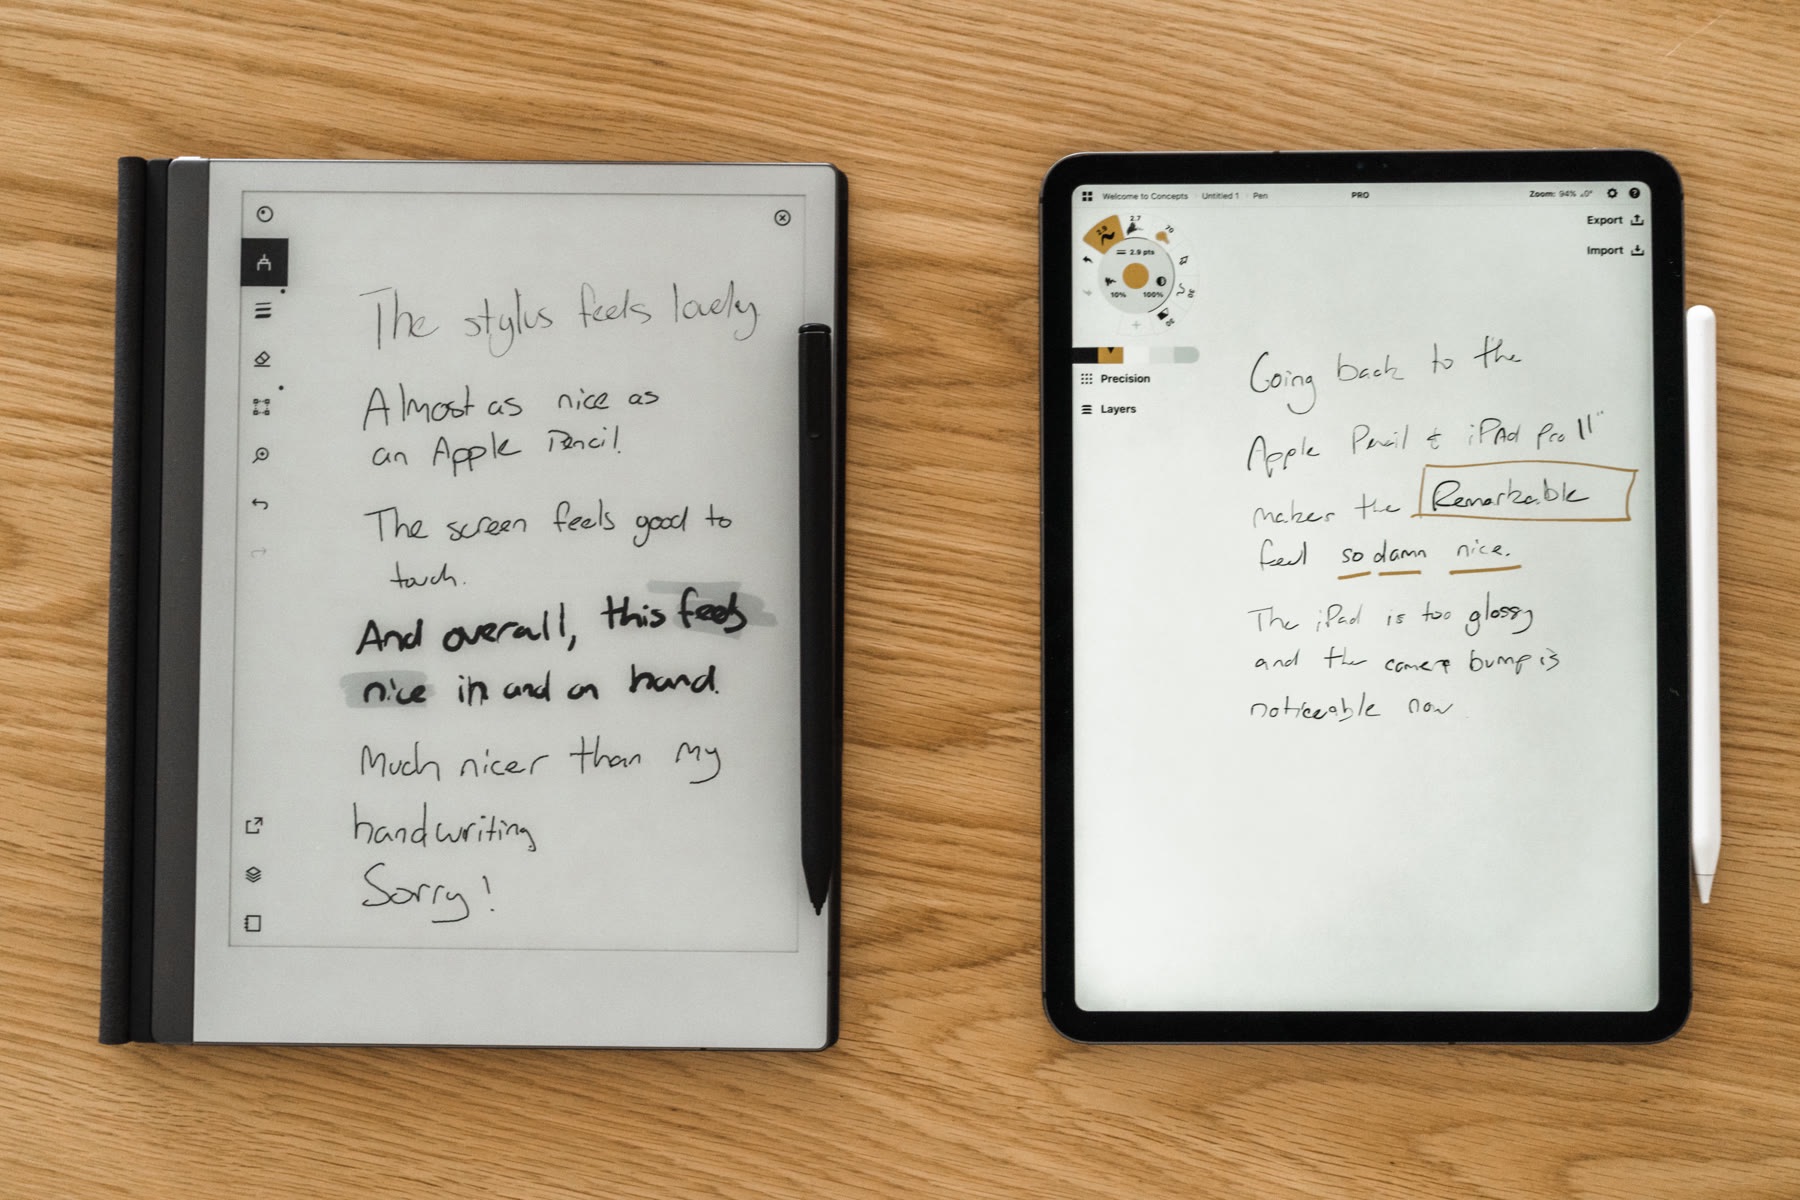 The stylus feels lovely
Almost as nice as
an Apple Pencil.
The screen feels good to
touch.
And overall, this feels
nice in and on hand.
Much nicer than my
handwriting
Sorry!
Welcome to Concepts Untitled 1 Pen PRO Zoom: 94% 0°
Export
Import
2.9
2.7
70
2.9 pts
10% 100%
Precision
Layers
Going back to the
Apple Pencil & iPad Pro 11"
makes the Remarkable
feel so damn nice.
The iPad is too glossy
and the camera bump is
noticeable now